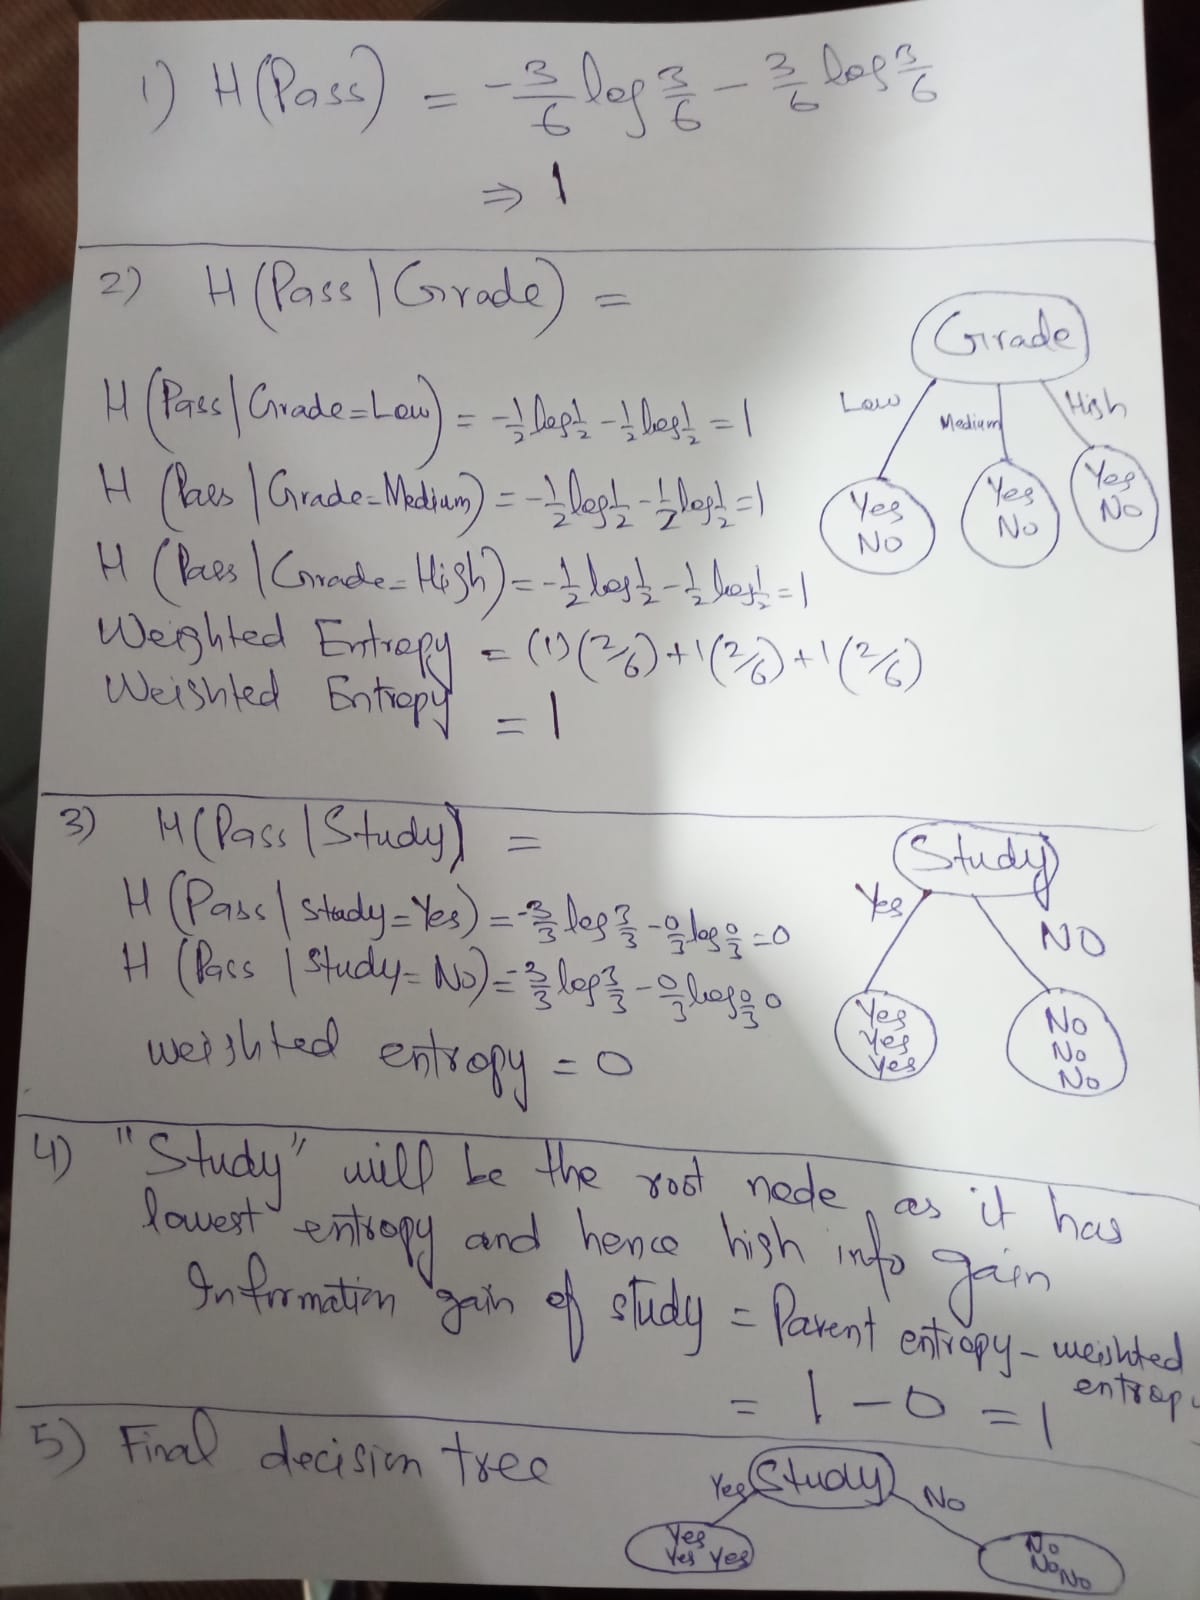 1) H(Pass) = -3/6 log 3/6 - 3/6 log 3/6
⇒ 1
2) H(Pass|Grade) =
Grade
Low Medium High
Yes NO
Yes NO
Yes NO
H(Pass|Grade=Low) = -1/2 log 1/2 - 1/2 log 1/2 = 1
H(Pass|Grade=Medium) = -1/2 log 1/2 - 1/2 log 1/2 = 1
H(Pass|Grade=High) = -1/2 log 1/2 - 1/2 log 1/2 = 1
Weighted Entropy = (1)(2/6) + 1(2/6) + 1(2/6)
Weighted Entropy = 1
3) H(Pass|Study) =
Study
Yes NO
Yes Yes Yes
No No No
H(Pass|study=Yes) = -3/3 log 3/3 - 0/3 log 0/3 = 0
H(Pass|study=No) = -3/3 log 3/3 - 0/3 log 0/3 0
weighted entropy = 0
4) "Study" will be the root node, as it has
lowest entropy and hence high info gain
Information gain of study = Parent entropy - weighted
entropy
= 1 - 0 = 1
5) Final decision tree
Study
Yes No
Yes
Yes Yes
No
No No